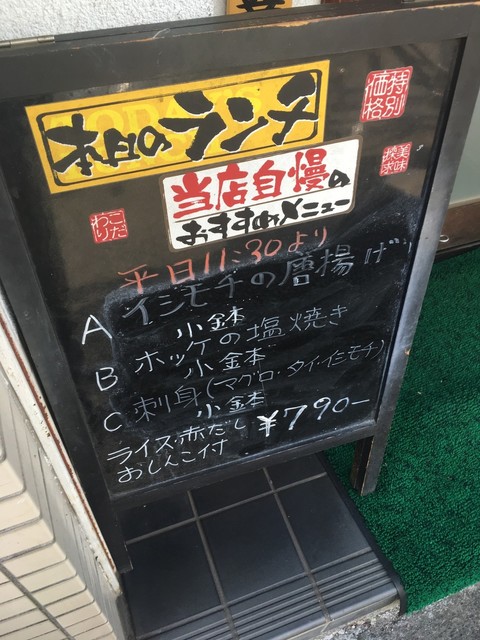 本日のランチ
特別
価格
当店自慢の
おすすめメニュー
美味
探求
こだ
わり
平日11:30より
A イシモチの唐揚げ
小鉢
B ホッケの塩焼き
小鉢
C 刺身(マグロ・タイ・イシモチ)
小鉢
ライス・赤だし
おしんこ付
¥790-